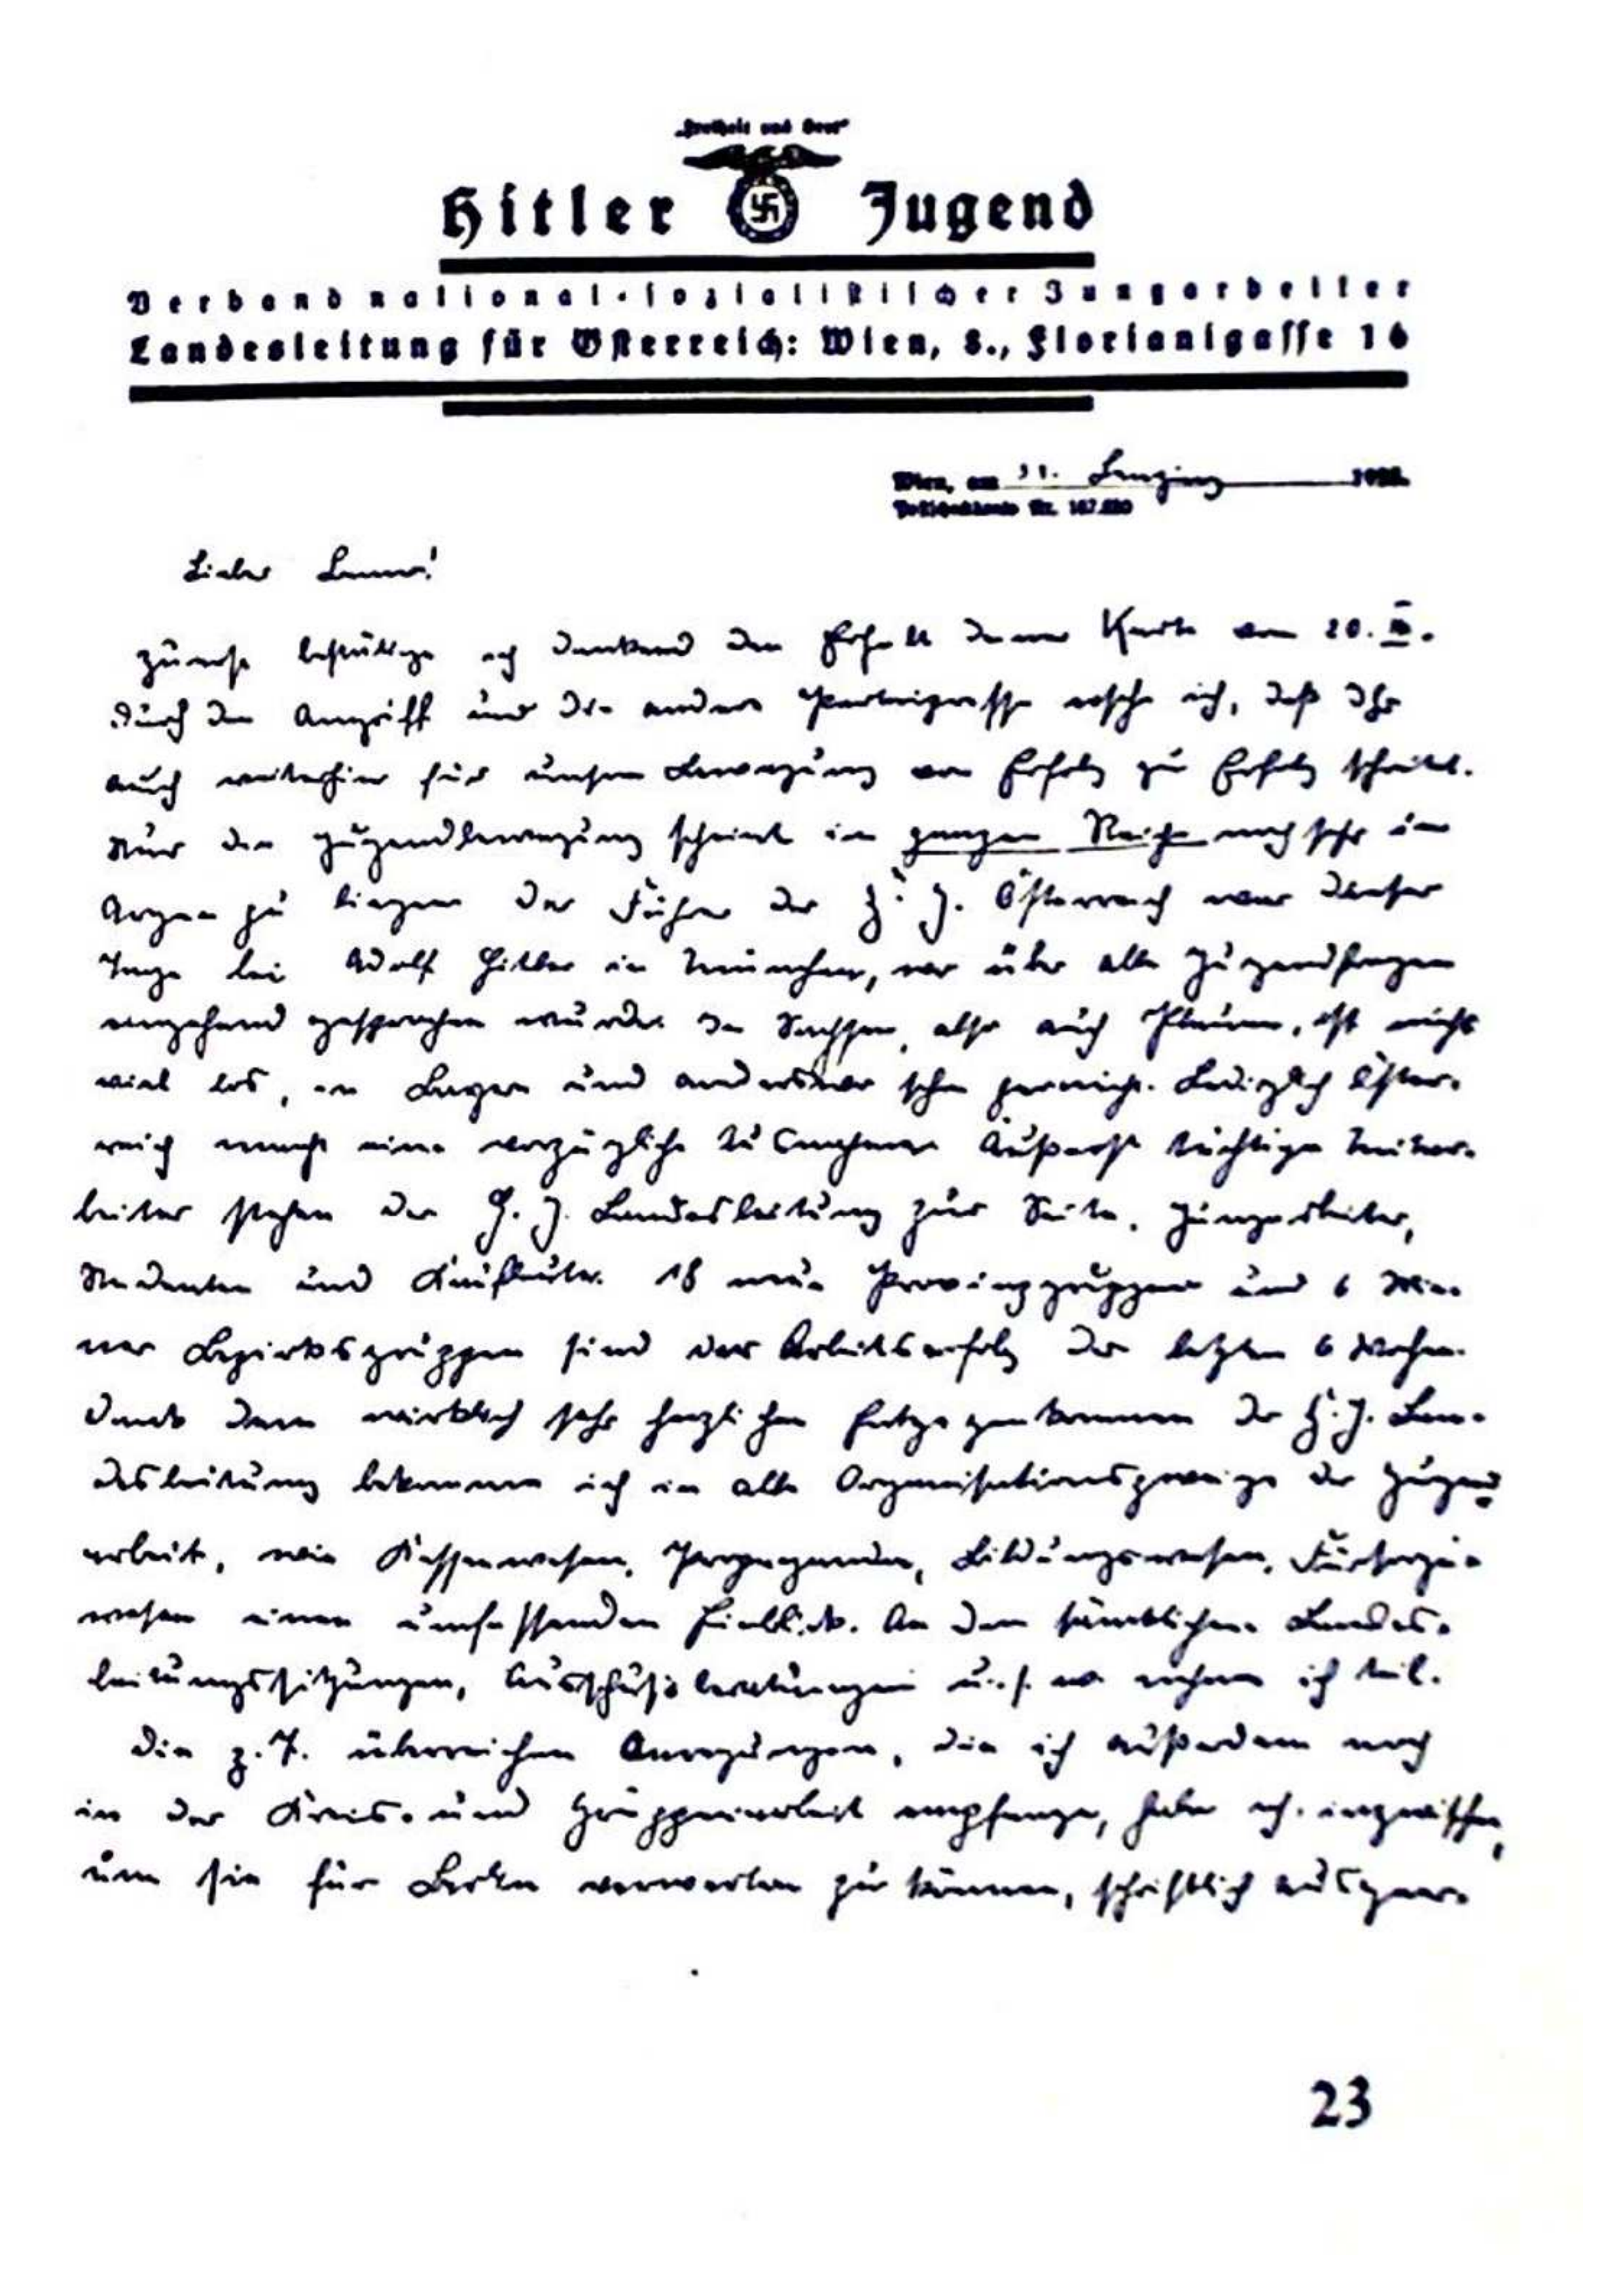 „Freiheit und Brot“
Hitler Jugend
Verband national-sozialistischer Jungarbeiter
Landesleitung für Österreich: Wien, 8., Florianigasse 16
Wien, am 31. Lenzing
Postscheckkonto Nr.
Lieber
Zuerst bestätige ich dankend den Erhalt Deiner Karte vom 20.
Durch den Angriff und die andere Parteipresse ersehe ich, daß Ihr
auch weiterhin für unsere Bewegung von Erfolg zu Erfolg schreitet.
Nur die Jugendbewegung scheint im ganzen Reiche noch sehr im
Argen zu liegen. Der Führer der H. J. Österreich war dieser
Tage bei Adolf Hitler in München, wo über alle Jugendfragen
eingehend gesprochen wurde. In Sachsen, also auch Plauen, ist nicht
viel los, in Bayern und anderswo schon garnicht. Lediglich Öster-
reich macht eine vorzügliche Ausnahme. Äußerst tüchtige Mitar-
beiter stehen der H. J. Landesleitung zur Seite, Jungarbeiter,
Studenten und Kaufleute. 18 neue Provinzgruppen und 6 Wie-
ner Bezirksgruppen sind der Arbeitserfolg der letzten 6 Wochen.
Dank dem wirklich sehr herzlichen Entgegenkommen der H. J. Lan-
desleitung bekomme ich in alle Organisationszweige der Jugend
arbeit, wie Kassenwesen, Propaganda, Bildungswesen, Fürsorge-
wesen einen umfassenden Einblick. An den sämtlichen Landes-
leitungssitzungen, Ausschußberatungen u. s. w. nehme ich teil.
Die z. T. überreichen Anregungen, die ich außerdem noch
in der Kreis- und Gruppenarbeit empfange, habe ich inzwischen,
um sie für Berlin verwerten zu können, schriftlich
23